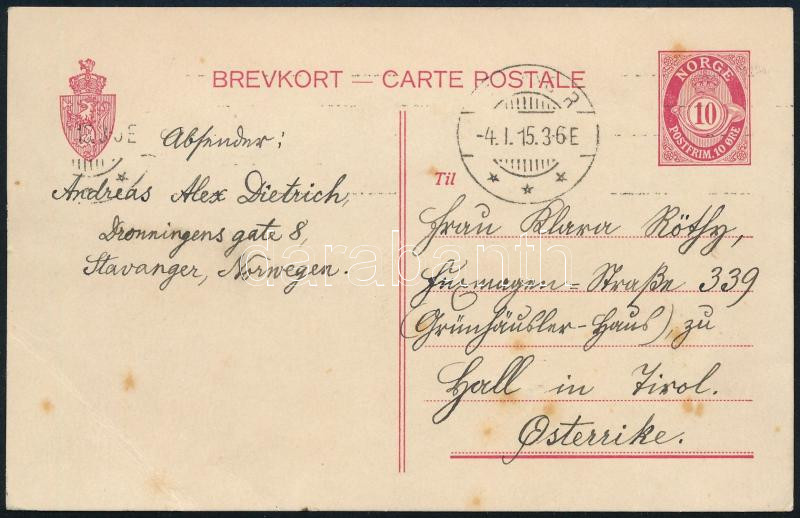 BREVKORT — CARTE POSTALE
NORGE
10
POSTFRIM. 10 ØRE
-4.I.15.3-6E
Absender:
Andreas Alex Dietrich,
Dronningens gate 8,
Stavanger, Norwegen.
Til
Frau Klara Röthy,
Straße 339
(Grünhäusler-Haus), zu
Hall in Tirol.
Østerrike.
darabanth